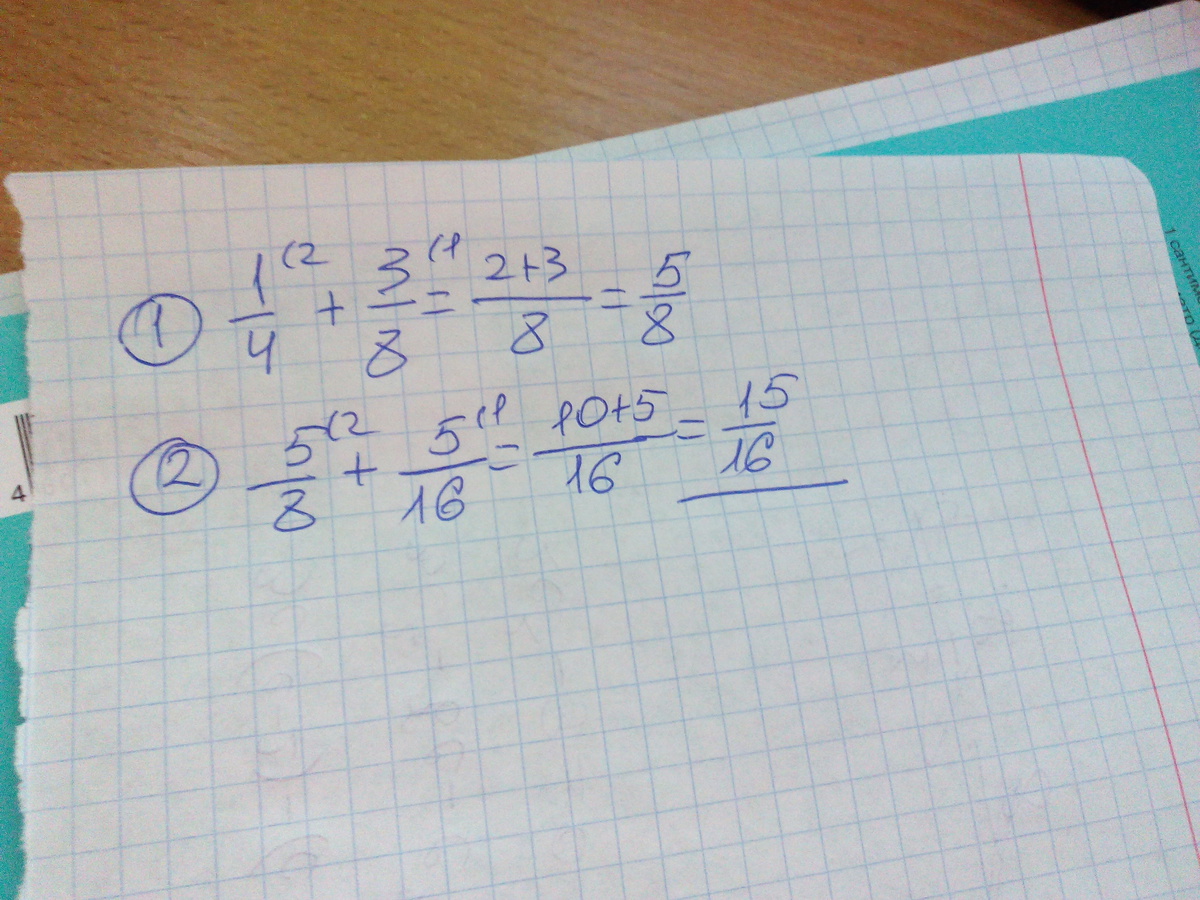 ① 1/4 (2 + 3/8 (1 = 2+3/8 = 5/8
② 5/8 (2 + 5/16 (1 = 10+5/16 = 15/16
1 сантим
4